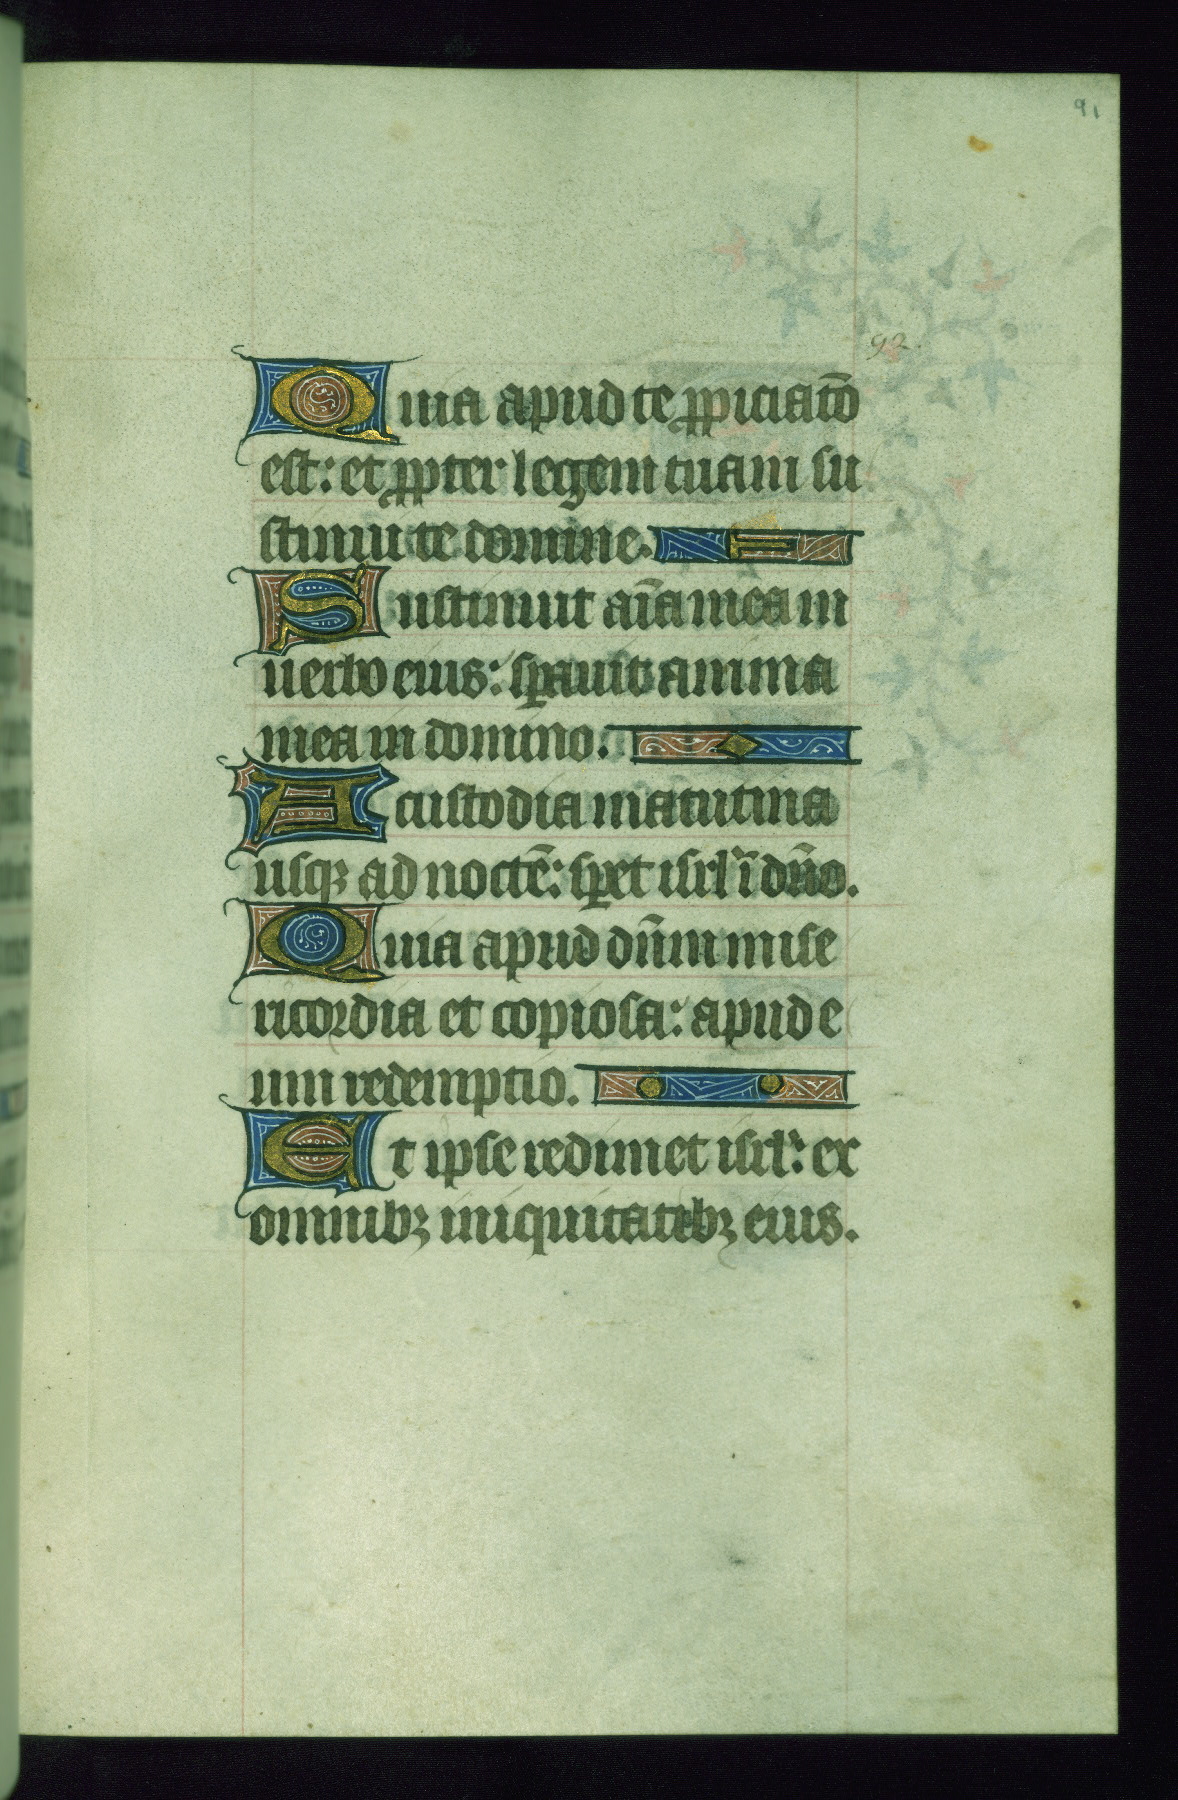 91
92.
Quia apud te ꝓpiciatō
est: et ꝓpter legem tuam su
stinui te domine.
Sustinuit aīa mea in
uerbo eius: sꝑauit anima
mea in domino.
A custodia matutina
usqꝫ ad noctē: sꝑet isrl̓ ī dn̄o.
Quia apud dn̄m mise
ricordia et copiosa: apud e
um redemptio.
Et ipse redimet isrl̓: ex
omnibꝫ iniquitatibꝫ eius.